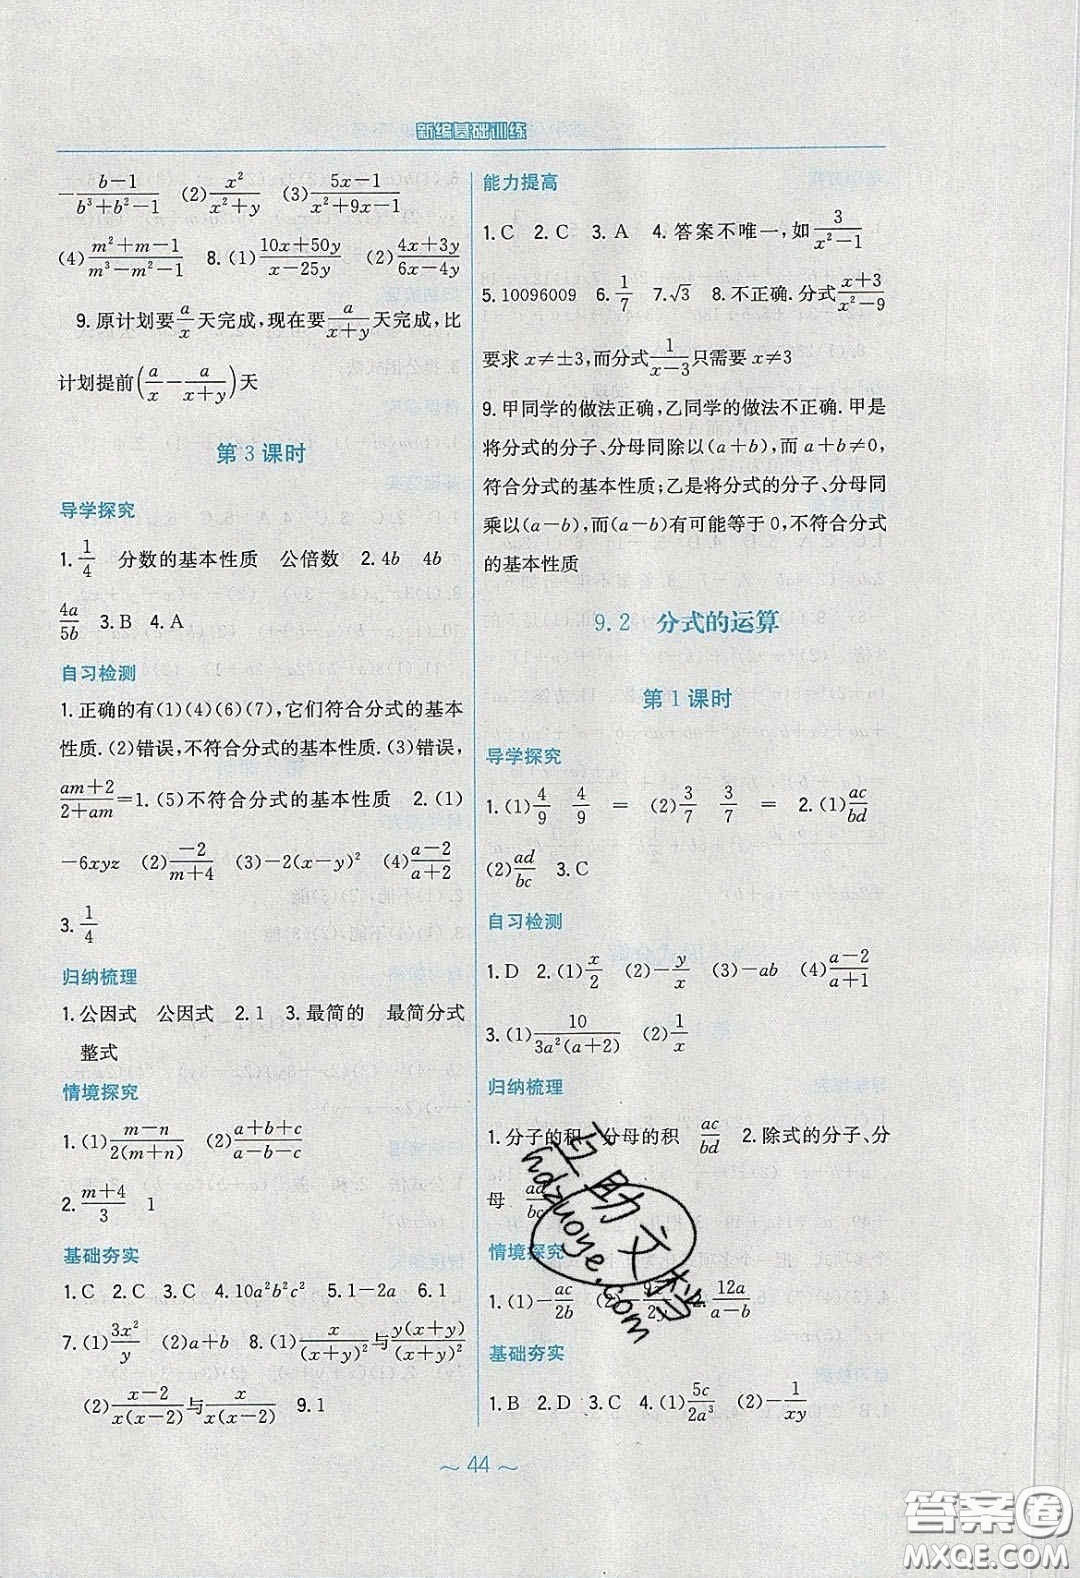 新编基础训练
-\frac{b-1}{b³+b²-1} (2)\frac{x²}{x²+y} (3)\frac{5x-1}{x²+9x-1}
(4)\frac{m²+m-1}{m³-m²-1} 8.(1)\frac{10x+50y}{x-25y} (2)\frac{4x+3y}{6x-4y}
9.原计划要\frac{a}{x}天完成,现在要\frac{a}{x+y}天完成,比
计划提前(\frac{a}{x}-\frac{a}{x+y})天
第3课时
导学探究
1.\frac{1}{4} 分数的基本性质 公倍数 2.4b 4b
\frac{4a}{5b} 3.B 4.A
自习检测
1.正确的有(1)(4)(6)(7),它们符合分式的基本
性质.(2)错误,不符合分式的基本性质.(3)错误,
\frac{am+2}{2+am}=1.(5)不符合分式的基本性质 2.(1)
-6xyz (2)\frac{-2}{m+4} (3)-2(x-y)² (4)\frac{a-2}{a+2}
3.\frac{1}{4}
归纳梳理
1.公因式 公因式 2.1 3.最简的 最简分式
整式
情境探究
1.(1)\frac{m-n}{2(m+n)} (2)\frac{a+b+c}{a-b-c}
2.\frac{m+4}{3} 1
基础夯实
1.C 2.C 3.C 4.10a²b²c² 5.1-2a 6.1
7.(1)\frac{3x²}{y} (2)a+b 8.(1)\frac{x}{(x+y)²}与\frac{y(x+y)}{(x+y)²}
(2)\frac{x-2}{x(x-2)}与\frac{x}{x(x-2)} 9.1
能力提高
1.C 2.C 3.A 4.答案不唯一,如\frac{3}{x²-1}
5.10096009 6.\frac{1}{7} 7.√3 8.不正确.分式\frac{x+3}{x²-9}
要求x≠±3,而分式\frac{1}{x-3}只需要x≠3
9.甲同学的做法正确,乙同学的做法不正确.甲是
将分式的分子、分母同除以(a+b),而a+b≠0,
符合分式的基本性质;乙是将分式的分子、分母同
乘以(a-b),而(a-b)有可能等于0,不符合分式
的基本性质
9.2 分式的运算
第1课时
导学探究
1.(1)\frac{4}{9} \frac{4}{9} = (2)\frac{3}{7} \frac{3}{7} = 2.(1)\frac{ac}{bd}
(2)\frac{ad}{bc} 3.C
自习检测
1.D 2.(1)\frac{x}{2} (2)-\frac{y}{x} (3)-ab (4)\frac{a-2}{a+1}
3.(1)\frac{10}{3a²(a+2)} (2)\frac{1}{x}
归纳梳理
1.分子的积 分母的积 \frac{ac}{bd} 2.除式的分子、分
母 \frac{ad}{bc}
情境探究
1.(1)-\frac{ac}{2b} (2) 2.\frac{12a}{a-b}
基础夯实
1.B 2.D 3.C 4.(1)\frac{5c}{2a³} (2)-\frac{1}{xy}
~ 44 ~
互助文档
hdzuoye.com
答案圈
MXQE.COM